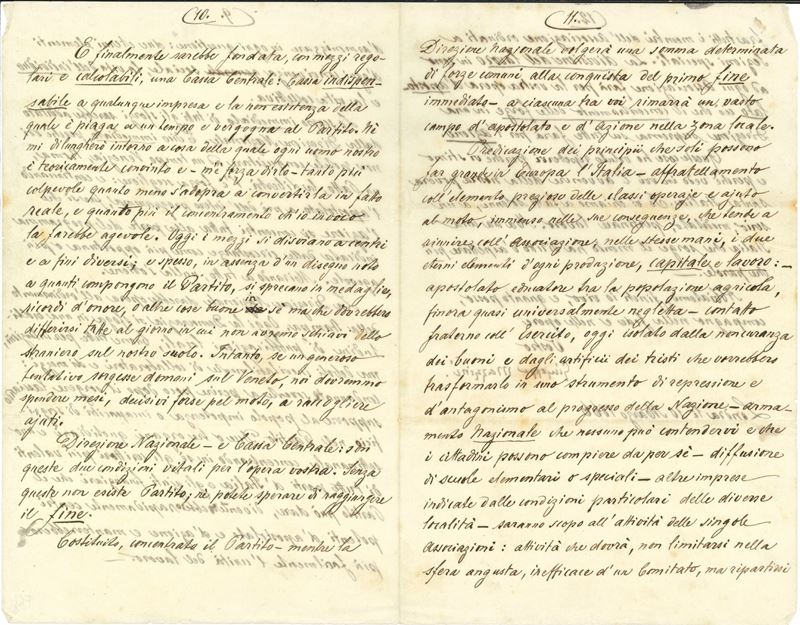 10.
E finalmente sarebbe fondata, con mezzi rego-
lari e calcolabili, una Cassa Centrale: Cassa indispen-
sabile a qualunque impresa e la non esistenza della
quale è piaga a un tempo e vergogna al Partito. Nè
mi dilungherò intorno a cosa della quale ogni uomo nostro
è teoricamente convinto e – m'è forza dirlo – tanto più
colpevole quanto meno s'adopra a convertirla in fatto
reale, e quanto più il concentramento ch'io invoco
la farebbe agevole. Oggi i mezzi si disviano a centri
e a fini diversi; e spesso, in assenza d'un disegno noto
a quanti compongono il Partito, si sprecano in medaglie,
ricordi d'onore, o altre cose buone in sè ma che dovrebbero
differirsi al giorno in cui non avremo schiavi dello
straniero sul nostro suolo. Intanto, se un generoso
tentativo sorgesse domani sul Veneto, noi dovremmo
spendere mesi, decisivi forse pel moto, a raccogliere
ajuti.
Direzione Nazionale – e Cassa Centrale: son
queste due condizioni vitali per l'opera vostra. Senza
queste non esiste Partito; nè potete sperare di raggiungere
il fine.
Costituito, concentrato il Partito – mentre la
11.
Direzione Nazionale volgerà una somma determinata
di forze comuni alla conquista del primo fine
immediato – a ciascuna tra voi rimarrà un vasto
campo d'apostolato e d'azione nella zona locale.
Predicazione dei principii che soli possono
far grande in Europa l'Italia – affratellamento
coll'elemento prezioso delle classi operaje e ajuto
al moto, immenso nelle sue conseguenze, che tende a
riunire coll'Associazione, nelle stesse mani, i due
eterni elementi d'ogni produzione, capitale e lavoro: –
apostolato educatore tra la popolazione agricola,
finora quasi universalmente negletta – contatto
fraterno coll'esercito, oggi isolato dalla noncuranza
dei buoni e dagli artificii dei tristi che vorrebbero
trasformarlo in uno strumento di repressione e
d'antagonismo al progresso della Nazione – arma-
mento Nazionale che nessuno può contendervi e che
i cittadini possono compiere da per sè – diffusione
di scuole elementari o speciali – altre imprese
indicate dalle condizioni particolari delle diverse
località – saranno scopo all'attività delle singole
Associazioni: attività che dovrà, non limitarsi nella
sfera angusta, inefficace d'un Comitato, ma ripartirsi